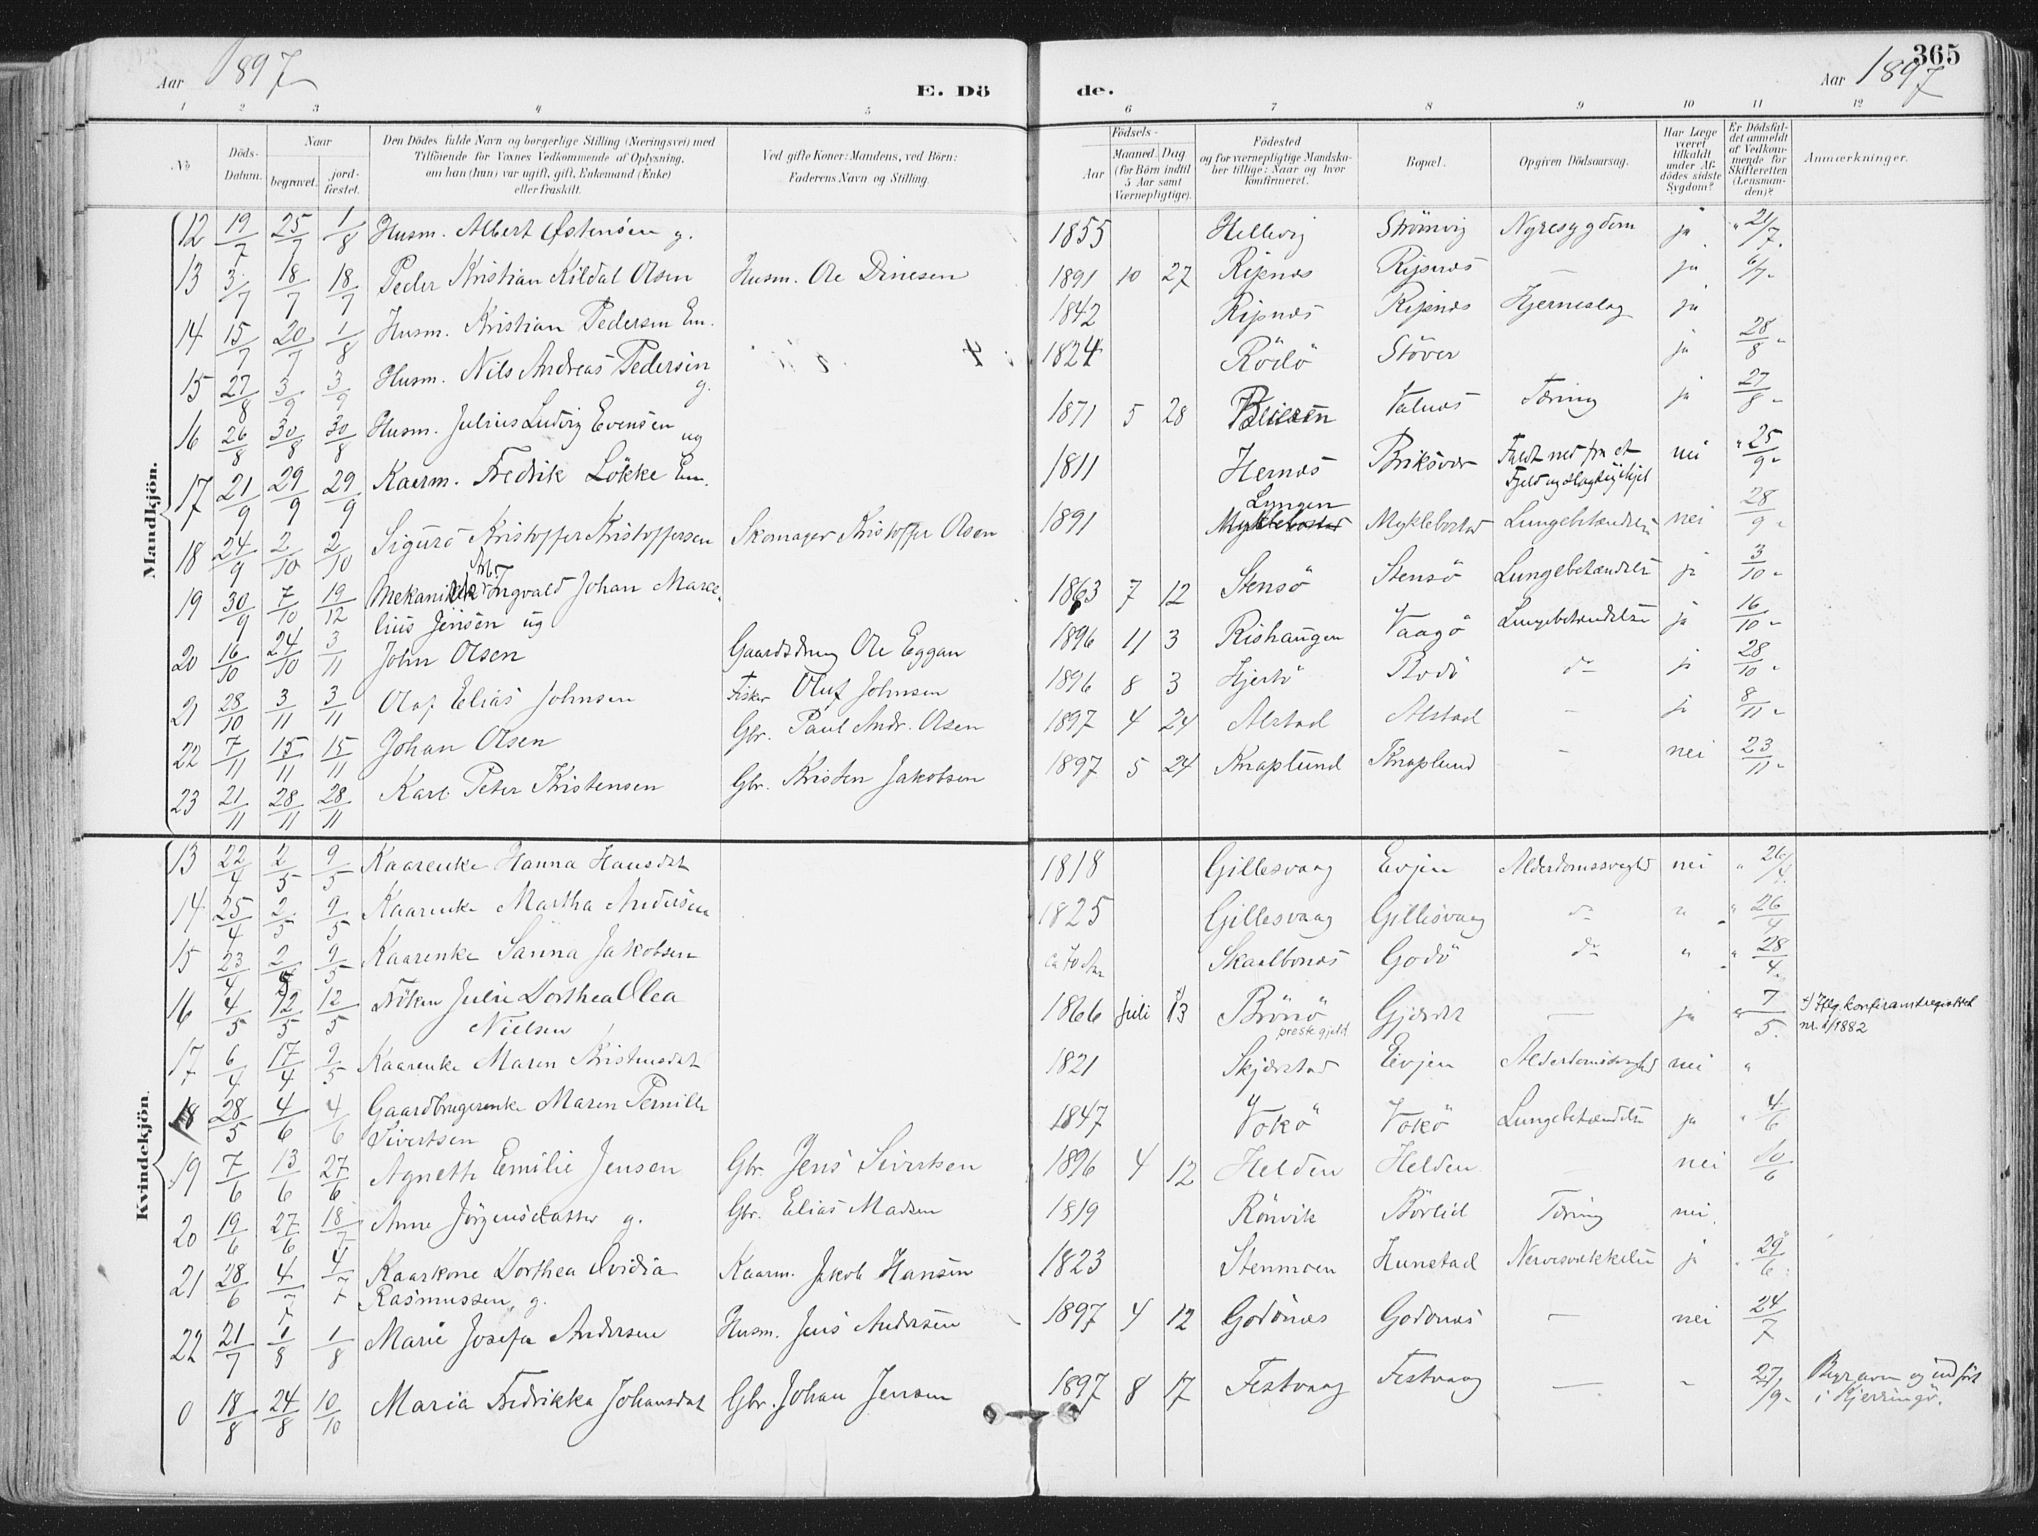 365
Aar 1897
E. Dö
de.
Aar 1897
1 2 3 4 5 6 7 8 9 10 11 12
No
Döds-Datum.
Naar
begravet.
jord-fæstet.
Den Dödes fulde Navn og borgerlige Stilling (Næringsvei) med
Tilföiende for Voxnes Vedkommende af Oplysning,
om han (hun) var ugift, gift, Enkemand (Enke)
eller fraskilt.
Ved gifte Koner: Mandens, ved Börn:
Faderens Navn og Stilling.
Födsels-
Aar
Maaned. Dag
(for Börn indtil
5 Aar samt
Værnepligtige).
Födested
og for værnepligtige Mandska-
ber tillige: Naar og hvor
konfirmeret.
Bopæl.
Opgiven Dödsaarsag.
Har Læge
været
tilkaldt
under Af-
dödes sidste
Sygdom?
Er Dödsfal-
det anmeldt
af Vedkom-
mende for
Skifteretten
(Lensman-
den)?
Anmærkninger.
Mandkjön.
12 19/7 25/7 1/8 Husm. Albert Østensen g. 1855 Hellevig Strömvig Nyresygdom ja " 21/7.
13 3/7 18/7 18/7 Peder Kristian Kildal Olsen Husm. Ole Dinesen 1891 10 27 Ripnæs Ripnæs — ja 6/7.
14 15/7 20/7 1/8 Husm. Kristian Pedersen Em. 1842 Ripnæs Ripnæs Hjerneslag ja
15 27/8 3/9 3/9 Husm. Nils Andreas Pedersen g. 1824 Rödö Stöver ja 28/8 "
16 26/8 30/8 30/8 Husm. Julius Ludvig Evensen ug 1871 5 28 Beieren Valnæs Tæring ja 27/8 "
17 21/9 29/9 29/9 Kaarm. Fredrik Lökke Em. 1811 Hernæs Briksvær Faldt ned fra et nei " 25/9 "
Fjeld og slog sig ihjel
18 24/9 2/10 2/10 Sigurd Kristoffer Kristoffersen Skomager Kristoffer Olsen 1891 Lyngen Myklebostad Myklebostad Lungebetændelse nei 28/9 "
19 30/9 7/10 19/12 Mekanisk Arb. Ingvald Johan Marce- 1863 7 12 Stensö Stensö Lungebetændelse ja 3/10 "
lius Jensen ug
20 16/10 24/10 3/11 John Olsen Gaardsdreng Ole Eggan 1896 11 3 Rishaugen Vaagö Lungebetændelse ja 16/10 "
21 28/10 3/11 3/11 Olaf Elias Johnsen Fisker Oluf Johnsen 1896 8 3 Hjertö Bodö do ja 28/10 "
22 7/11 15/11 15/11 Johan Olsen Gbr. Paul Andr. Olsen 1897 4 24 Alstad Alstad — ja 8/11 "
23 21/11 28/11 28/11 Karl Peter Kristensen Gbr. Kristen Jakobsen 1897 5 24 Knaplund Knaplund — nei 23/11 "
Kvindekjön.
13 22/4 2/5 9/5 Kaarenke Hanna Hansdat 1818 Gillesvaag Evjen Alderdomssvaghd nei " 26/4.
14 25/4 2/5 9/5 Kaarenke Martha Andersen 1825 Gillesvaag Gillesvaag do " " 26/4
15 23/4 2/5 9/5 Kaarenke Sanna Jakobsen ca 70 Aar Skaalbones Godö do " " 28/4
16 4/5 12/5 12/5 Fröken Julie Dorthea Olea 1866 juli 13 Brönö Gjærdet — ja " 7/5. *) Iflg. konfirmantregisteret
Nielsen prestegjeld nr. 1/1882
17 6/4 17/4 9/5 Kaarenke Maren Kristensdat 1821 Skjærstad Eivjen Alderdomssvaghd nei "
18 28/5 4/6 4/6 Gaardbrugerenke Maren Pernille 1847 Vokö Vokö Lungebetændelse ja " 4/6
Sivertsen
19 7/6 13/6 27/6 Agnethe Emilie Jensen Gbr. Jens Sivertsen 1896 4 12 Helden Helden — nei 10/6
20 19/6 27/6 18/7 Anne Jörgensdatter g. Gbr. Elias Madsen 1819 Rönvik Börlid Tæring nei.
21 28/6 4/7 4/7 Kaarkone Dorthea Ovidia Kaarm. Jakob Hansen 1823 Stenmoen Hunstad Nervesvækkelse ja " 29/6
Rasmussen g.
22 21/7 1/8 1/8 Marie Josefa Andersen Husm. Jens Andersen 1897 4 12 Godönes Godönes — nei 24/7
0 18/8 24/8 10/10 Maria Fredrikka Johansdat Gbr. Johan Jensen 1897 8 17 Festvaag Festvaag — " 27/9 Begraven og indfört
i Kjerringö.